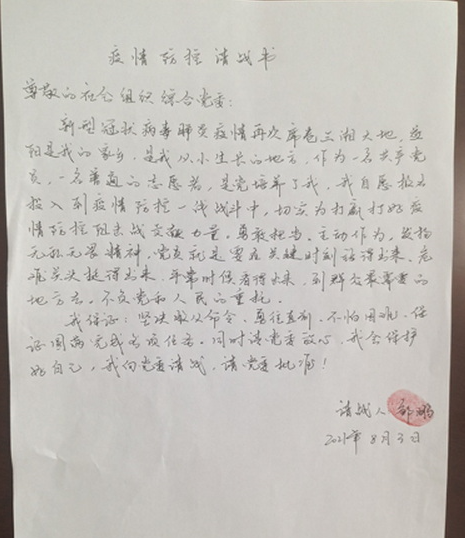 疫情防控请战书
尊敬的社会组织综合党委:
新型冠状病毒肺炎疫情再次席卷三湘大地,益
阳是我的家乡,是我从小生长的地方,作为一名共产党
员,一名普通的志愿者,是党培养了我,我自愿报名
投入到疫情防控一线战斗中,切实为打赢打好疫
情防控阻击战贡献力量。勇敢担当、主动作为,发扬
无私无畏精神,党员就是要在关键时刻站得出来、危
难关头挺得出来,平常时候看得出来,到群众最需要的
地方去。不负党和人民的重托。
我保证:坚决服从命令、勇往直前、不怕困难、保
证圆满完成各项任务。同时请党委放心,我会保护
好自己,我向党委请战,请党委批准!
请战人 鹏
2021年8月3日